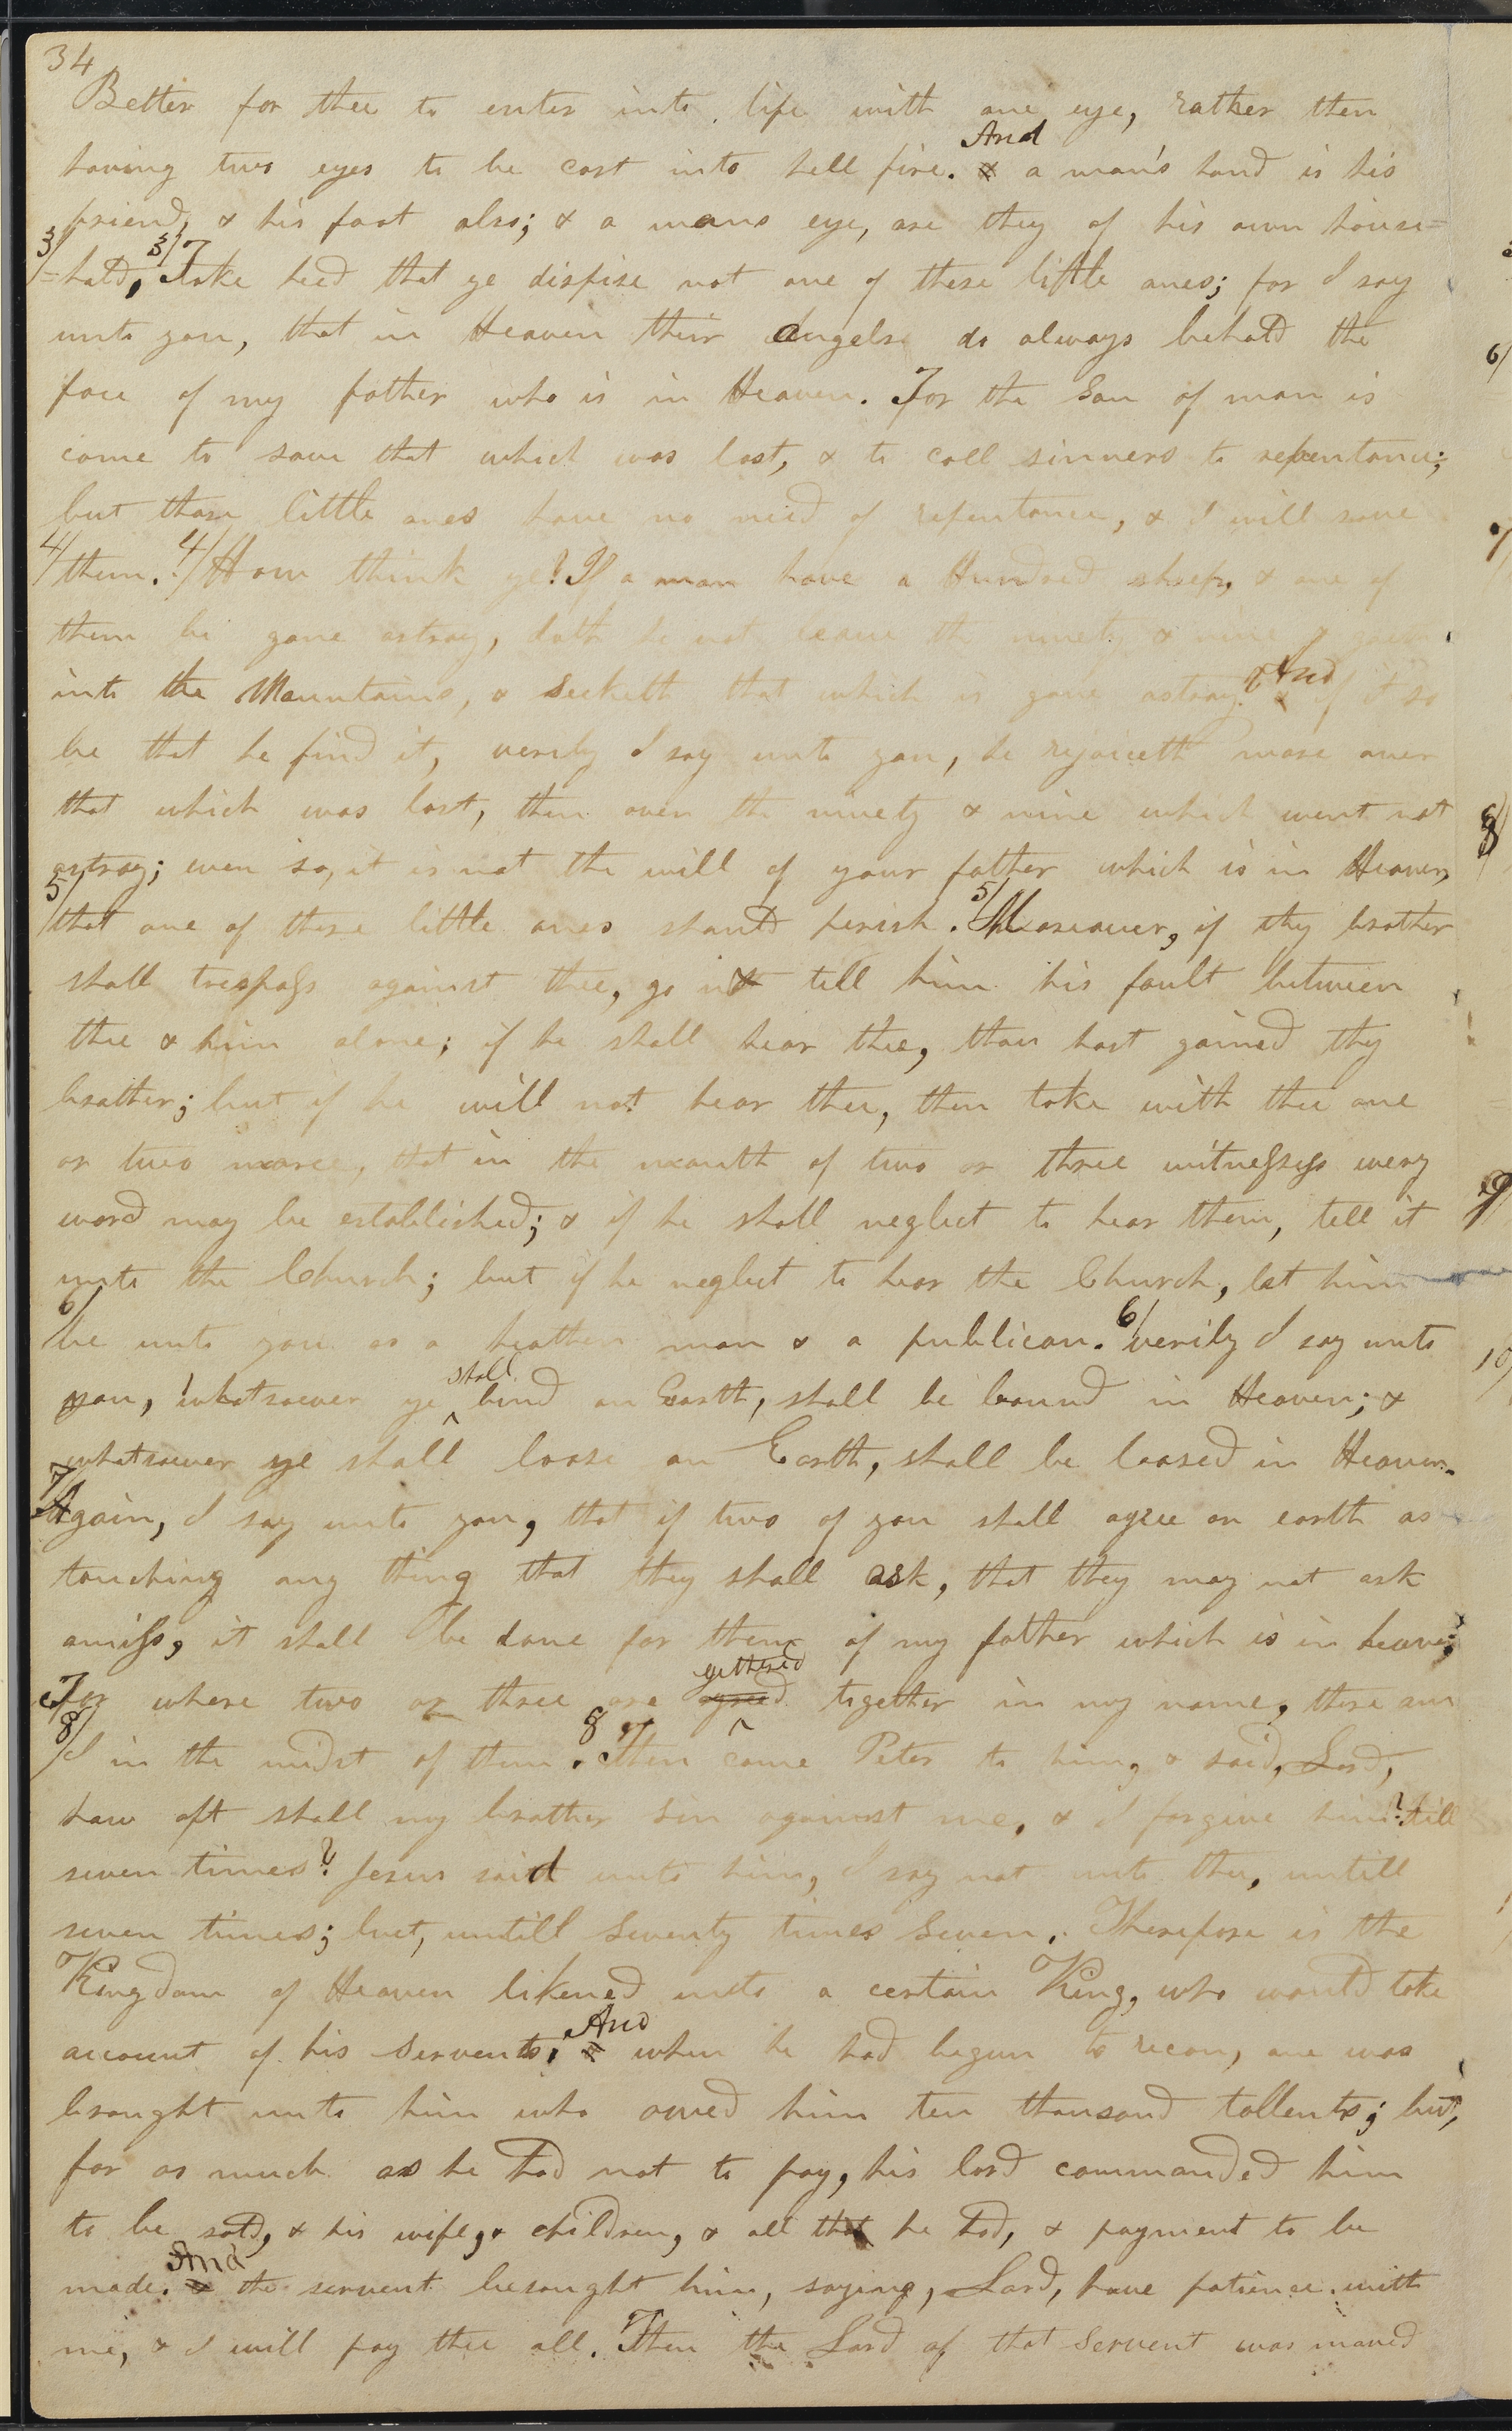 34
Better for thee to enter into life with one eye, rather then
And
having two eyes to be cast into hell fire. & a man's hand is his
friend, & his foot also; & a mans eye, are they of his own house=
3/ =hold, 3/ Take heed that ye dispise not one of these little ones; for I say
unto you, that in Heaven their Angels do always behold the
face of my father who is in Heaven. For the Son of man is
come to save that which was lost, & to call sinners to repentance;
but these little ones have no need of repentance, & I will save
4/ them. 4/ How think ye? If a man have a Hundred sheep, & one of
them be gone astray, doth he not leave the ninety & nine & goeth
into the Mountains, & seeketh that which is gone astray? And & if it so
be that he find it, verily I say unto you, he rejoiceth more over
that which was lost, then over the ninety & nine which went not
astray; even so, it is not the will of your father which is in Heaven,
5/ that one of these little ones should perish. 5/ Moreover, if thy brother
shall trespass against thee, go & tell him his fault between
thee & him alone; if he shall hear thee, thou hast gained thy
brother; but if he will not hear thee, then take with thee one
or two more, that in the mouth of two or three witnesses every
word may be established; & if he shall neglect to hear them, tell it
unto the Church; but if he neglect to hear the Church, let him
6/ be unto you as a heathen man & a publican. 6/ verily I say unto
you, whatsoever ye ^shall bind on Earth, shall be bound in Heaven; &
whatsoever ye shall loose on Earth, shall be loosed in Heaven.
7/ Again, I say unto you, that if two of you shall agree on earth as
touching any thing that they shall ask, that they may not ask
amiss, it shall be done for them of my father which is in heaven;
gethered
For where two or three are agreed together in my name, there am
8/ I in the midst of them. 8 Then came Peter to him, & said, Lord,
how oft shall my brother sin against me, & I forgive him? till
seven times? Jesus said unto him, I say not unto thee, untill
seven times; but, untill Seventy times Seven. Therefore is the
Kingdom of Heaven likened unto a certain King, who would take
And
account of his Servents. & when he had begun to recon, one was
brought unto him who owed him ten thousand tallents; but,
for as much as he had not to pay, his lord commanded him
to be sold, & his wife, & children, & all that he had, & payment to be
And
made. & the servent besought him, saying, Lord, have patience with
me, & I will pay thee all. Then the Lord of that Servent was moved
6/
8/
9/
10/